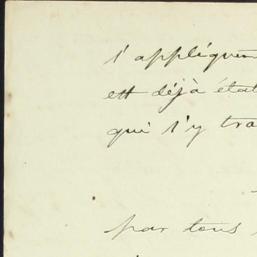 s'appliquen
est déjà état
qui s'y tra
par tous